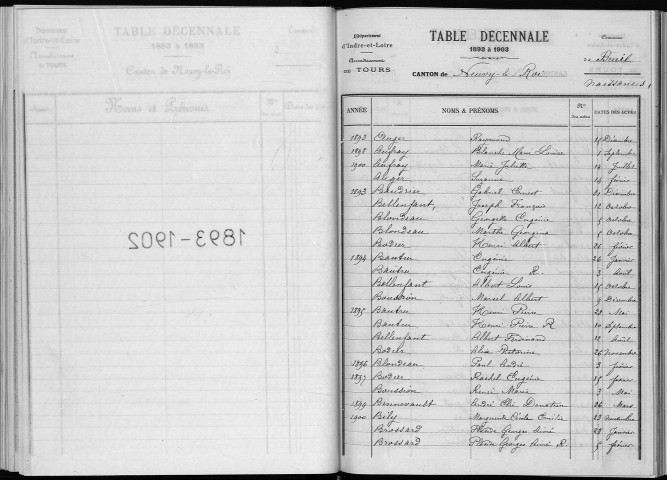 Département
d'Indre-et-Loire
Arrondissement
DE TOURS
TABLE DÉCENNALE
1893 à 1903
Canton de Neuvy-le-Roi
Noms et Prénoms
1893-1902
Département
d'Indre-et-Loire
Arrondissement
DE TOURS
TABLE DÉCENNALE
1893 à 1903
CANTON de Neuvy-le-Roi
Commune
de Bueil
Naissances
ANNÉE NOMS & PRÉNOMS Nos des actes DATES DES ACTES
1893 Auger Raymond 15 Décembre
1898 Aufray Blanche Marie Louise 7 Septembre
1900 Aufray Marie Juliette 14 Juillet
Auger Suzanne 14 février
1893 Baudrier Gabriel Ernest 21 Décembre
Bellenfant, Joseph François 12 Octobre
Blondeau Georgette Eugénie 5 Octobre
Blondeau Marthe Georgina 5 Octobre
Bodier Henri Albert 26 février
1894 Bautru Eugénie 26 Janvier
Bautru Eugénie R. 3 Août
Bellenfant Albert Louis 15 Octobre
Boudron Marcel Albert 9 Décembre
1895 Bautru Henri Pierre 28 Mai
Bautru Henri Pierre R 10 Septembre
Bellenfant Albert Ferdinand 12 Août
Bodier Alice Victorine 26 Novembre
1896 Blondeau Paul André 3 février
1897 Bodier Rachel Eugénie 25 février
Boussion René Marie 3 Mai
1899 Bennevault André Elie Donatien 26 Mars
1900 Bily Marguerite Cécile Emilie 23 Novembre
Brossard Flavie Georges Aimé 28 Janvier
Brossard Flavie Georges Aimé R. 5 février